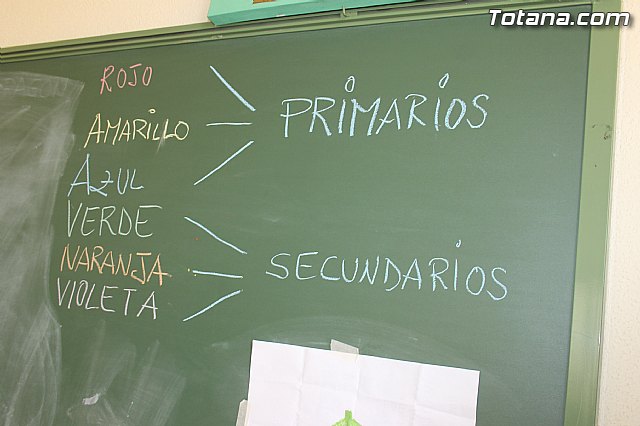 Totana.com
ROJO
AMARILLO
AZUL
PRIMARIOS
VERDE
NARANJA
VIOLETA
SECUNDARIOS